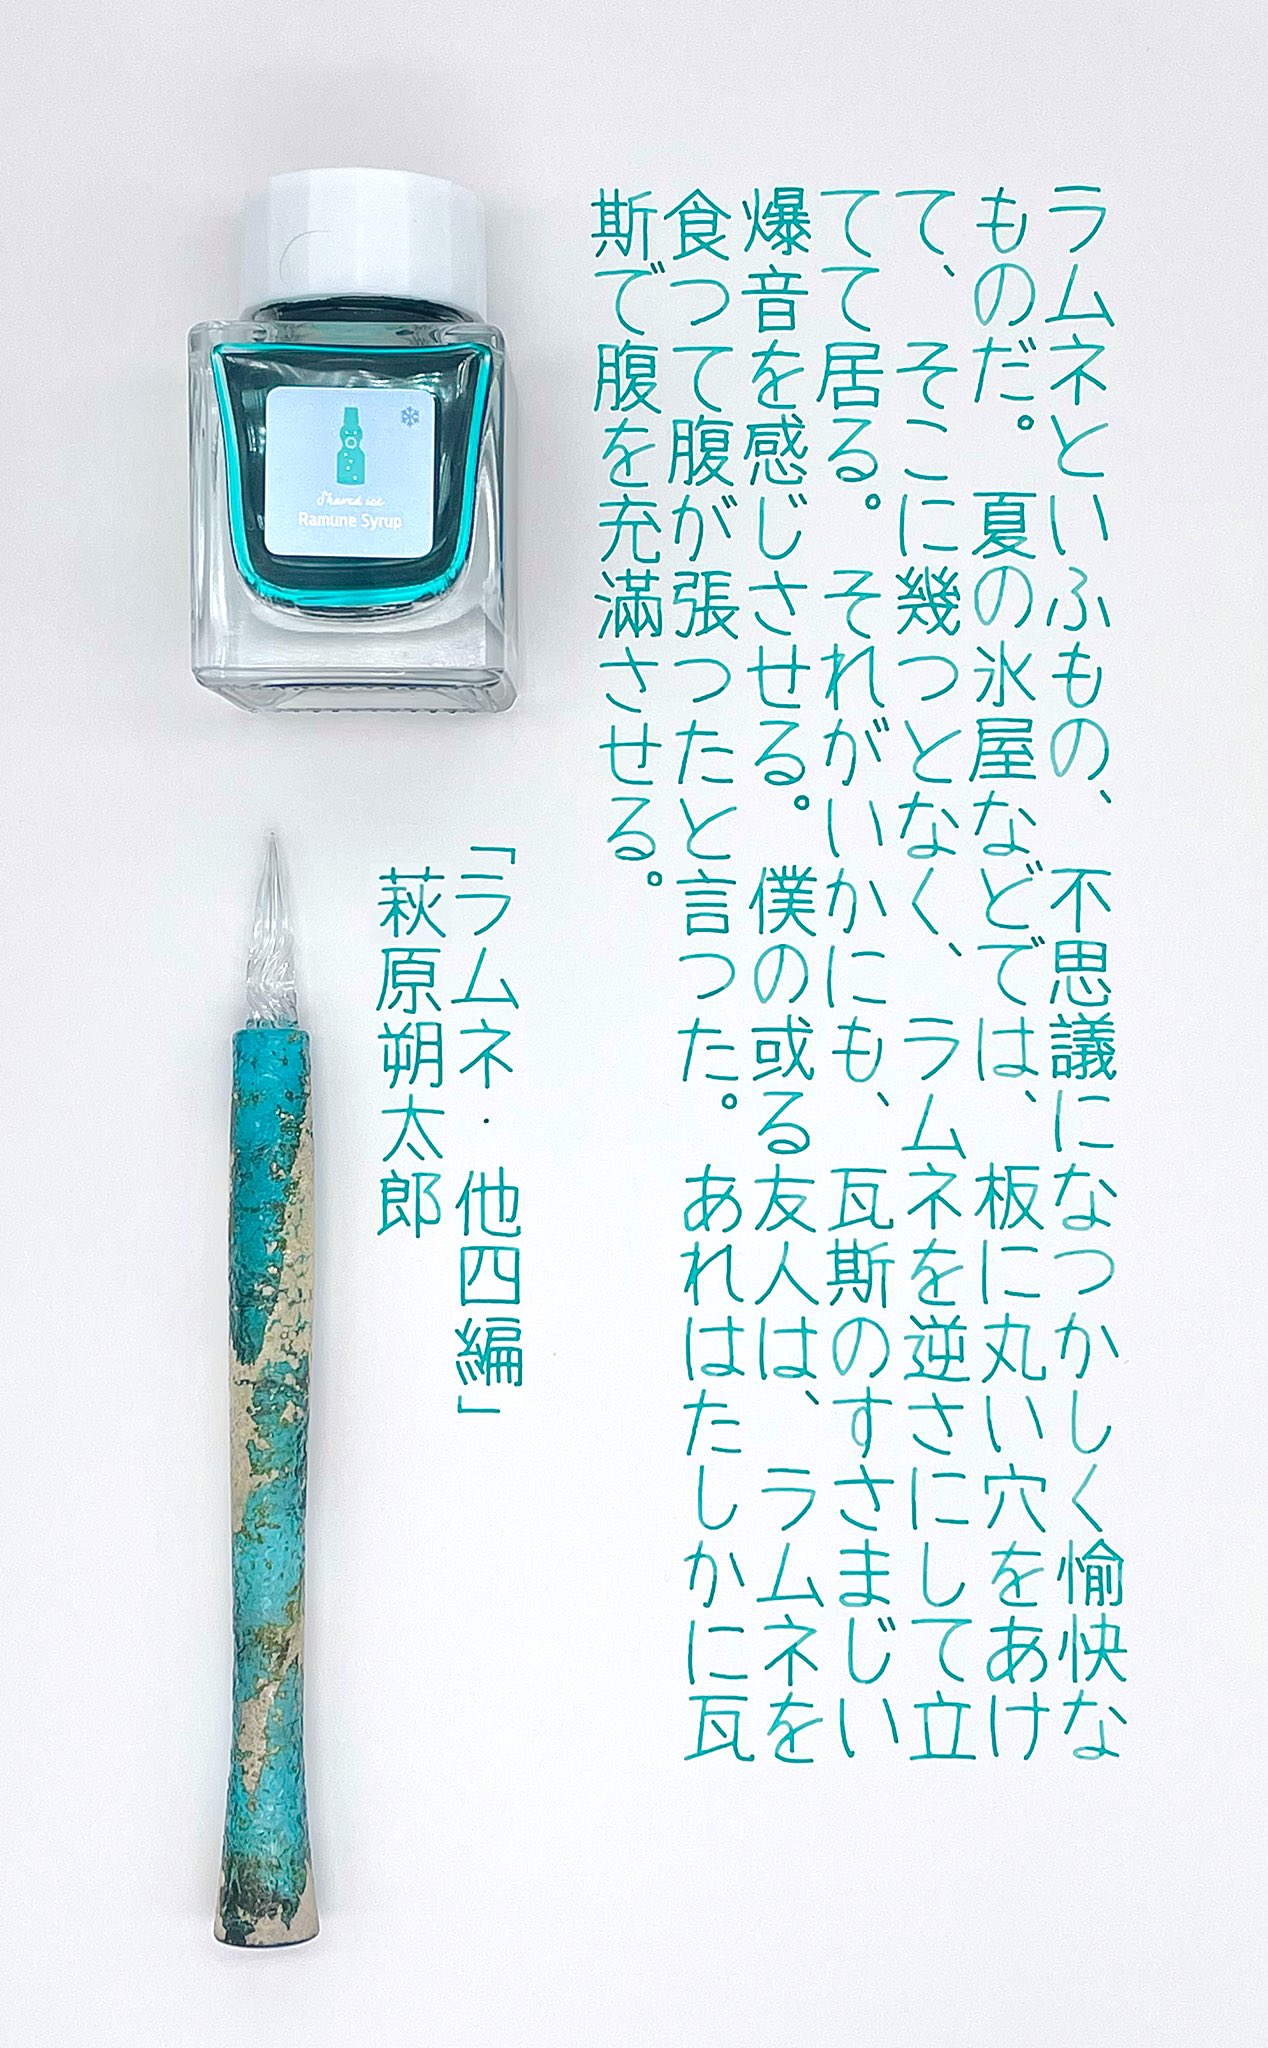 ラムネといふもの、不思議になつかしく愉快な
ものだ。夏の氷屋などでは、板に丸い穴をあけ
て、そこに幾つとなく、ラムネを逆さにして立
てて居る。それがいかにも、瓦斯のすさまじい
爆音を感じさせる。僕の或る友人は、ラムネを
食つて腹が張つたと言つた。あれはたしかに瓦
斯で腹を充満させる。
「ラムネ・他四編」
萩原朔太郎
Shaved ice
Ramune Syrup